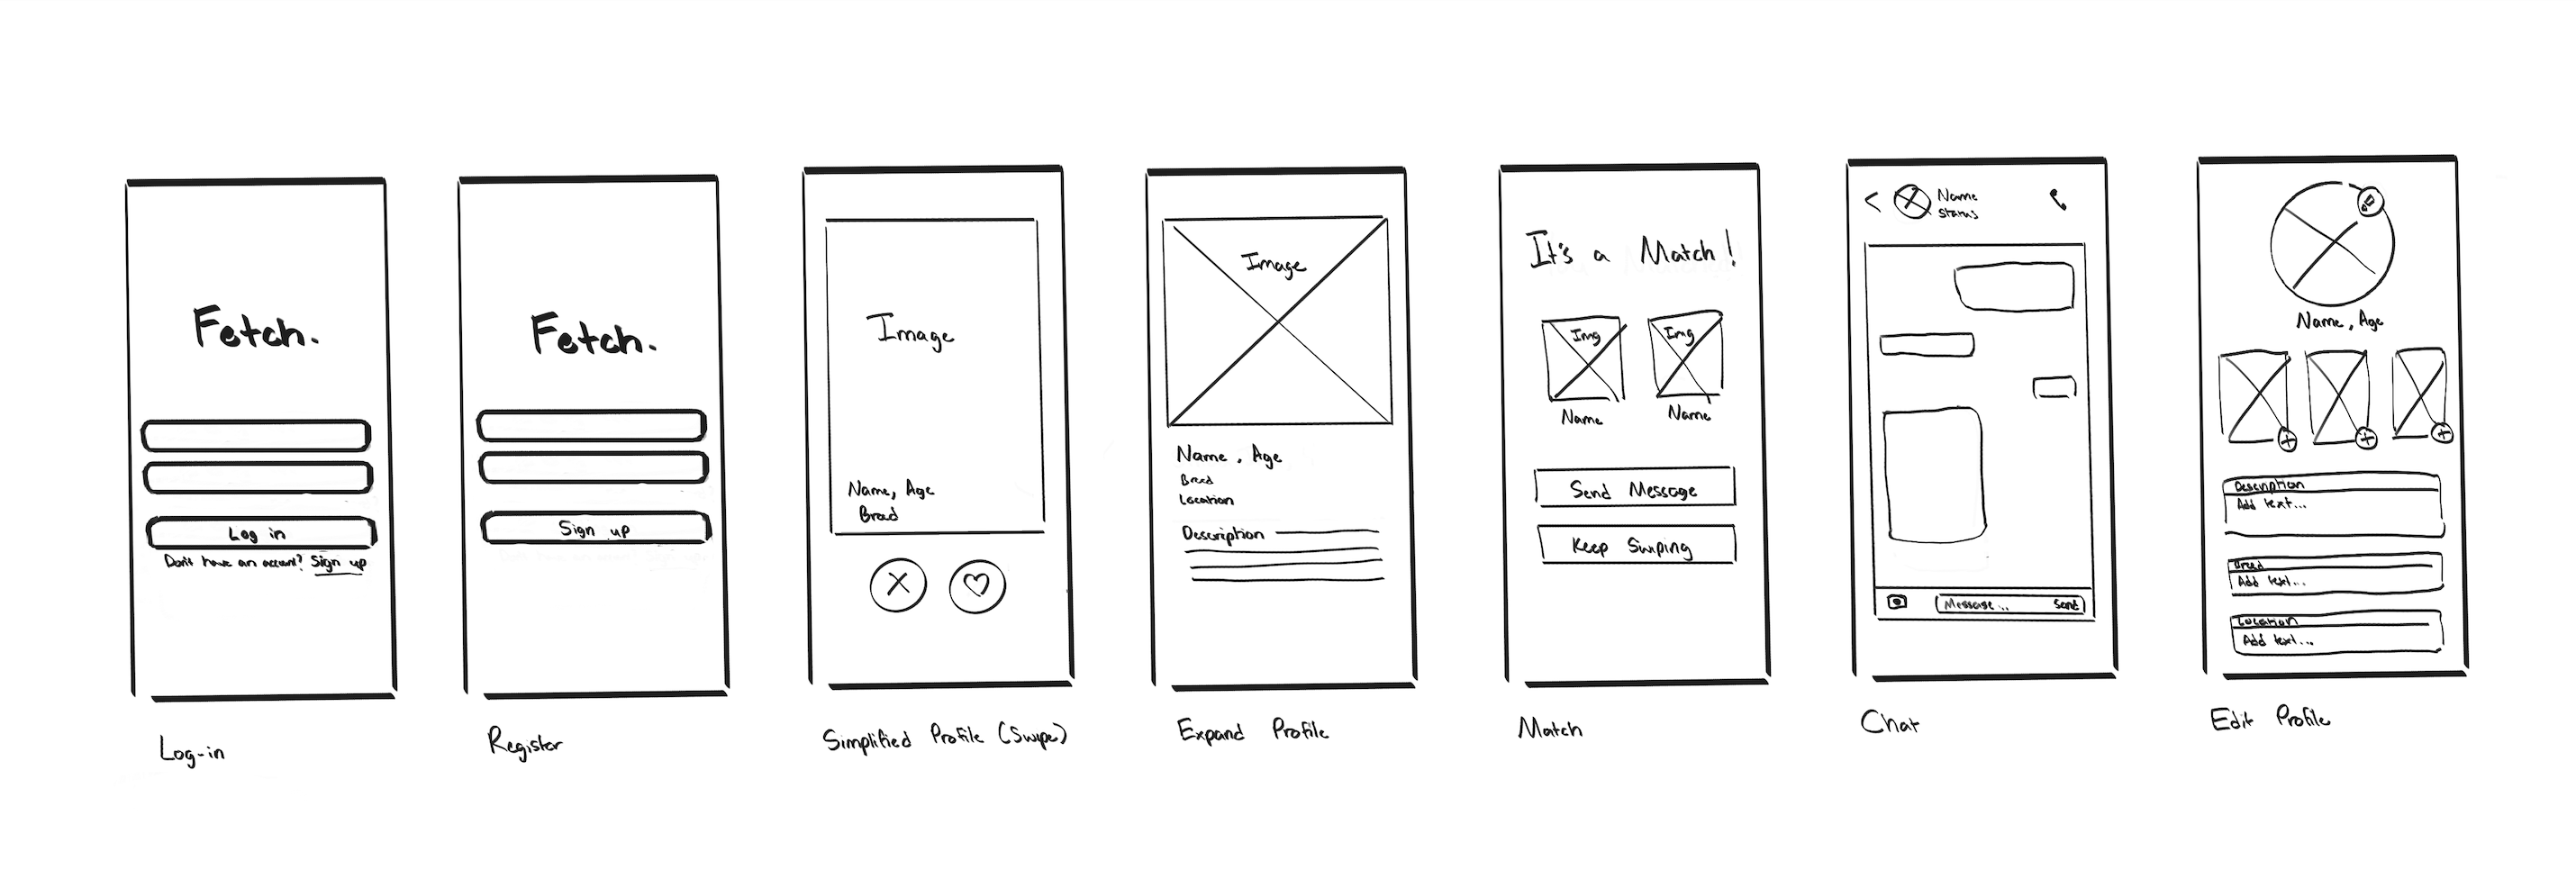 Fetch.
Log in
Don't have an account? Sign up
Log-in
Fetch.
Sign up
Register
Image
Name, Age
Breed
Simplified Profile (Swipe)
Image
Name, Age
Breed
Location
Description
Expand Profile
It's a Match!
Img
Img
Name
Name
Send Message
Keep Swiping
Match
Name
Status
Message...
Send
Chat
Name, Age
Description
Add text...
Breed
Add text...
Location
Add text...
Edit Profile